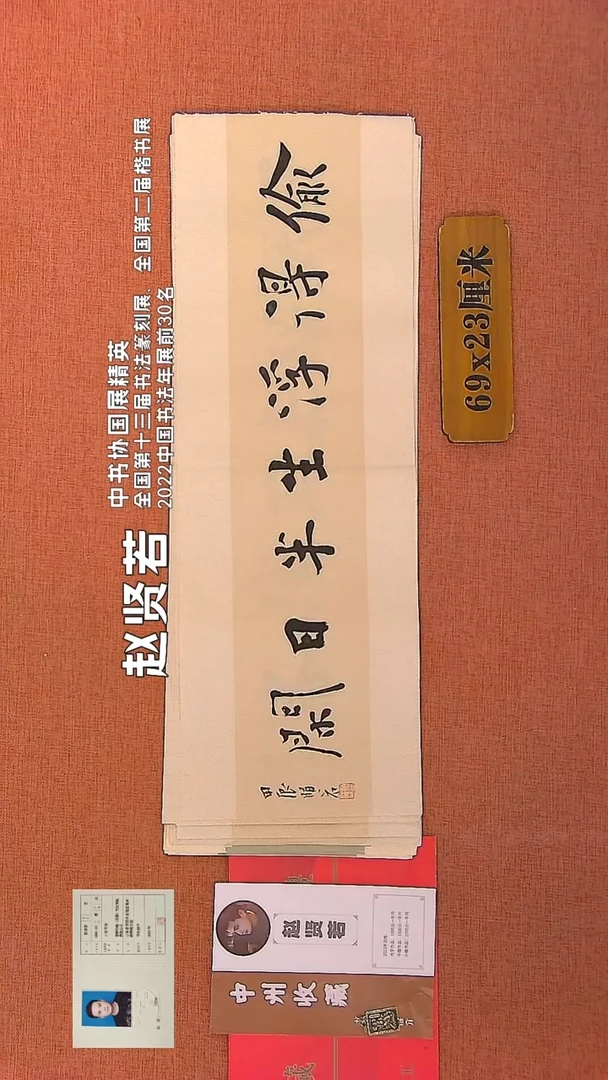 赵贤若
中书协国展精英
全国第十三届书法篆刻展、全国第二届楷书展
2022中国书法年展前30名
偷得浮生半日閑
甲辰賢若
69x23厘米
赵贤若
中州收藏